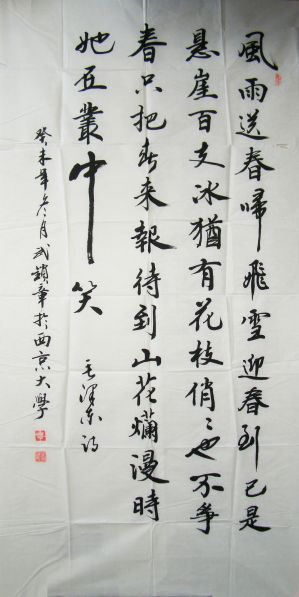 風雨送春歸飛雪迎春到已是
懸崖百丈冰猶有花枝俏俏也不爭
春只把春來報待到山花爛漫時
她在叢中笑
毛澤東詞
癸未年冬月武鎖章於西京大學